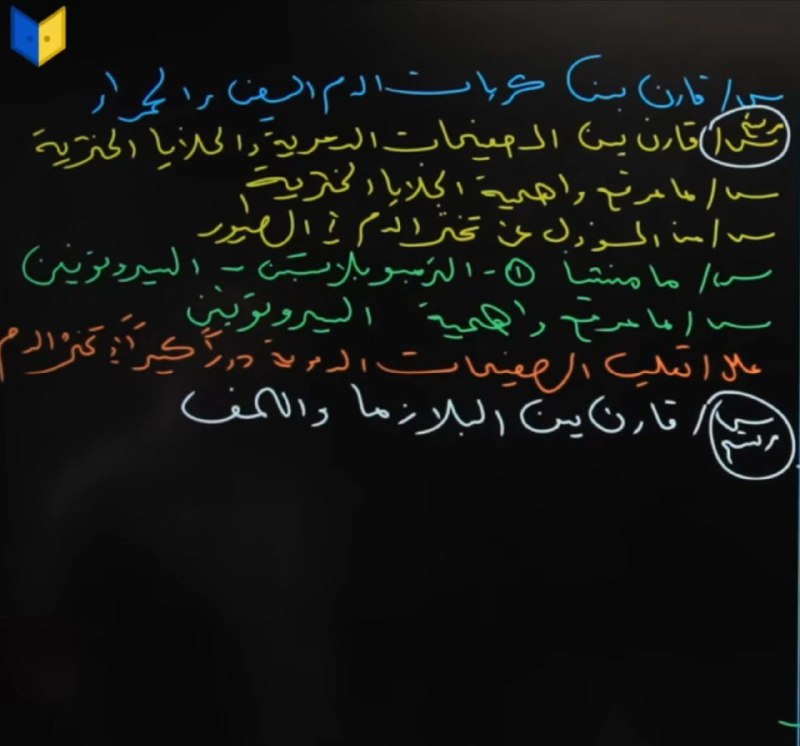 س/ قارن بين كريات الدم البيض والحمراء
مرشح س/ قارن بين الصفيحات الدموية والخلايا الخثرية
س/ ما موقع واهمية الخلايا الخثرية
س/ من المسؤول عن تخثر الدم في الطيور
س/ ما منشأ ① - الثرمبوبلاستين - البيروثرين
س/ ما موقع واهمية البيروثرين
علل/ تعلب الصفيحات الدموية دوراً كبيراً في تخثر الدم
س/ مرشح قارن بين البلازما واللمف